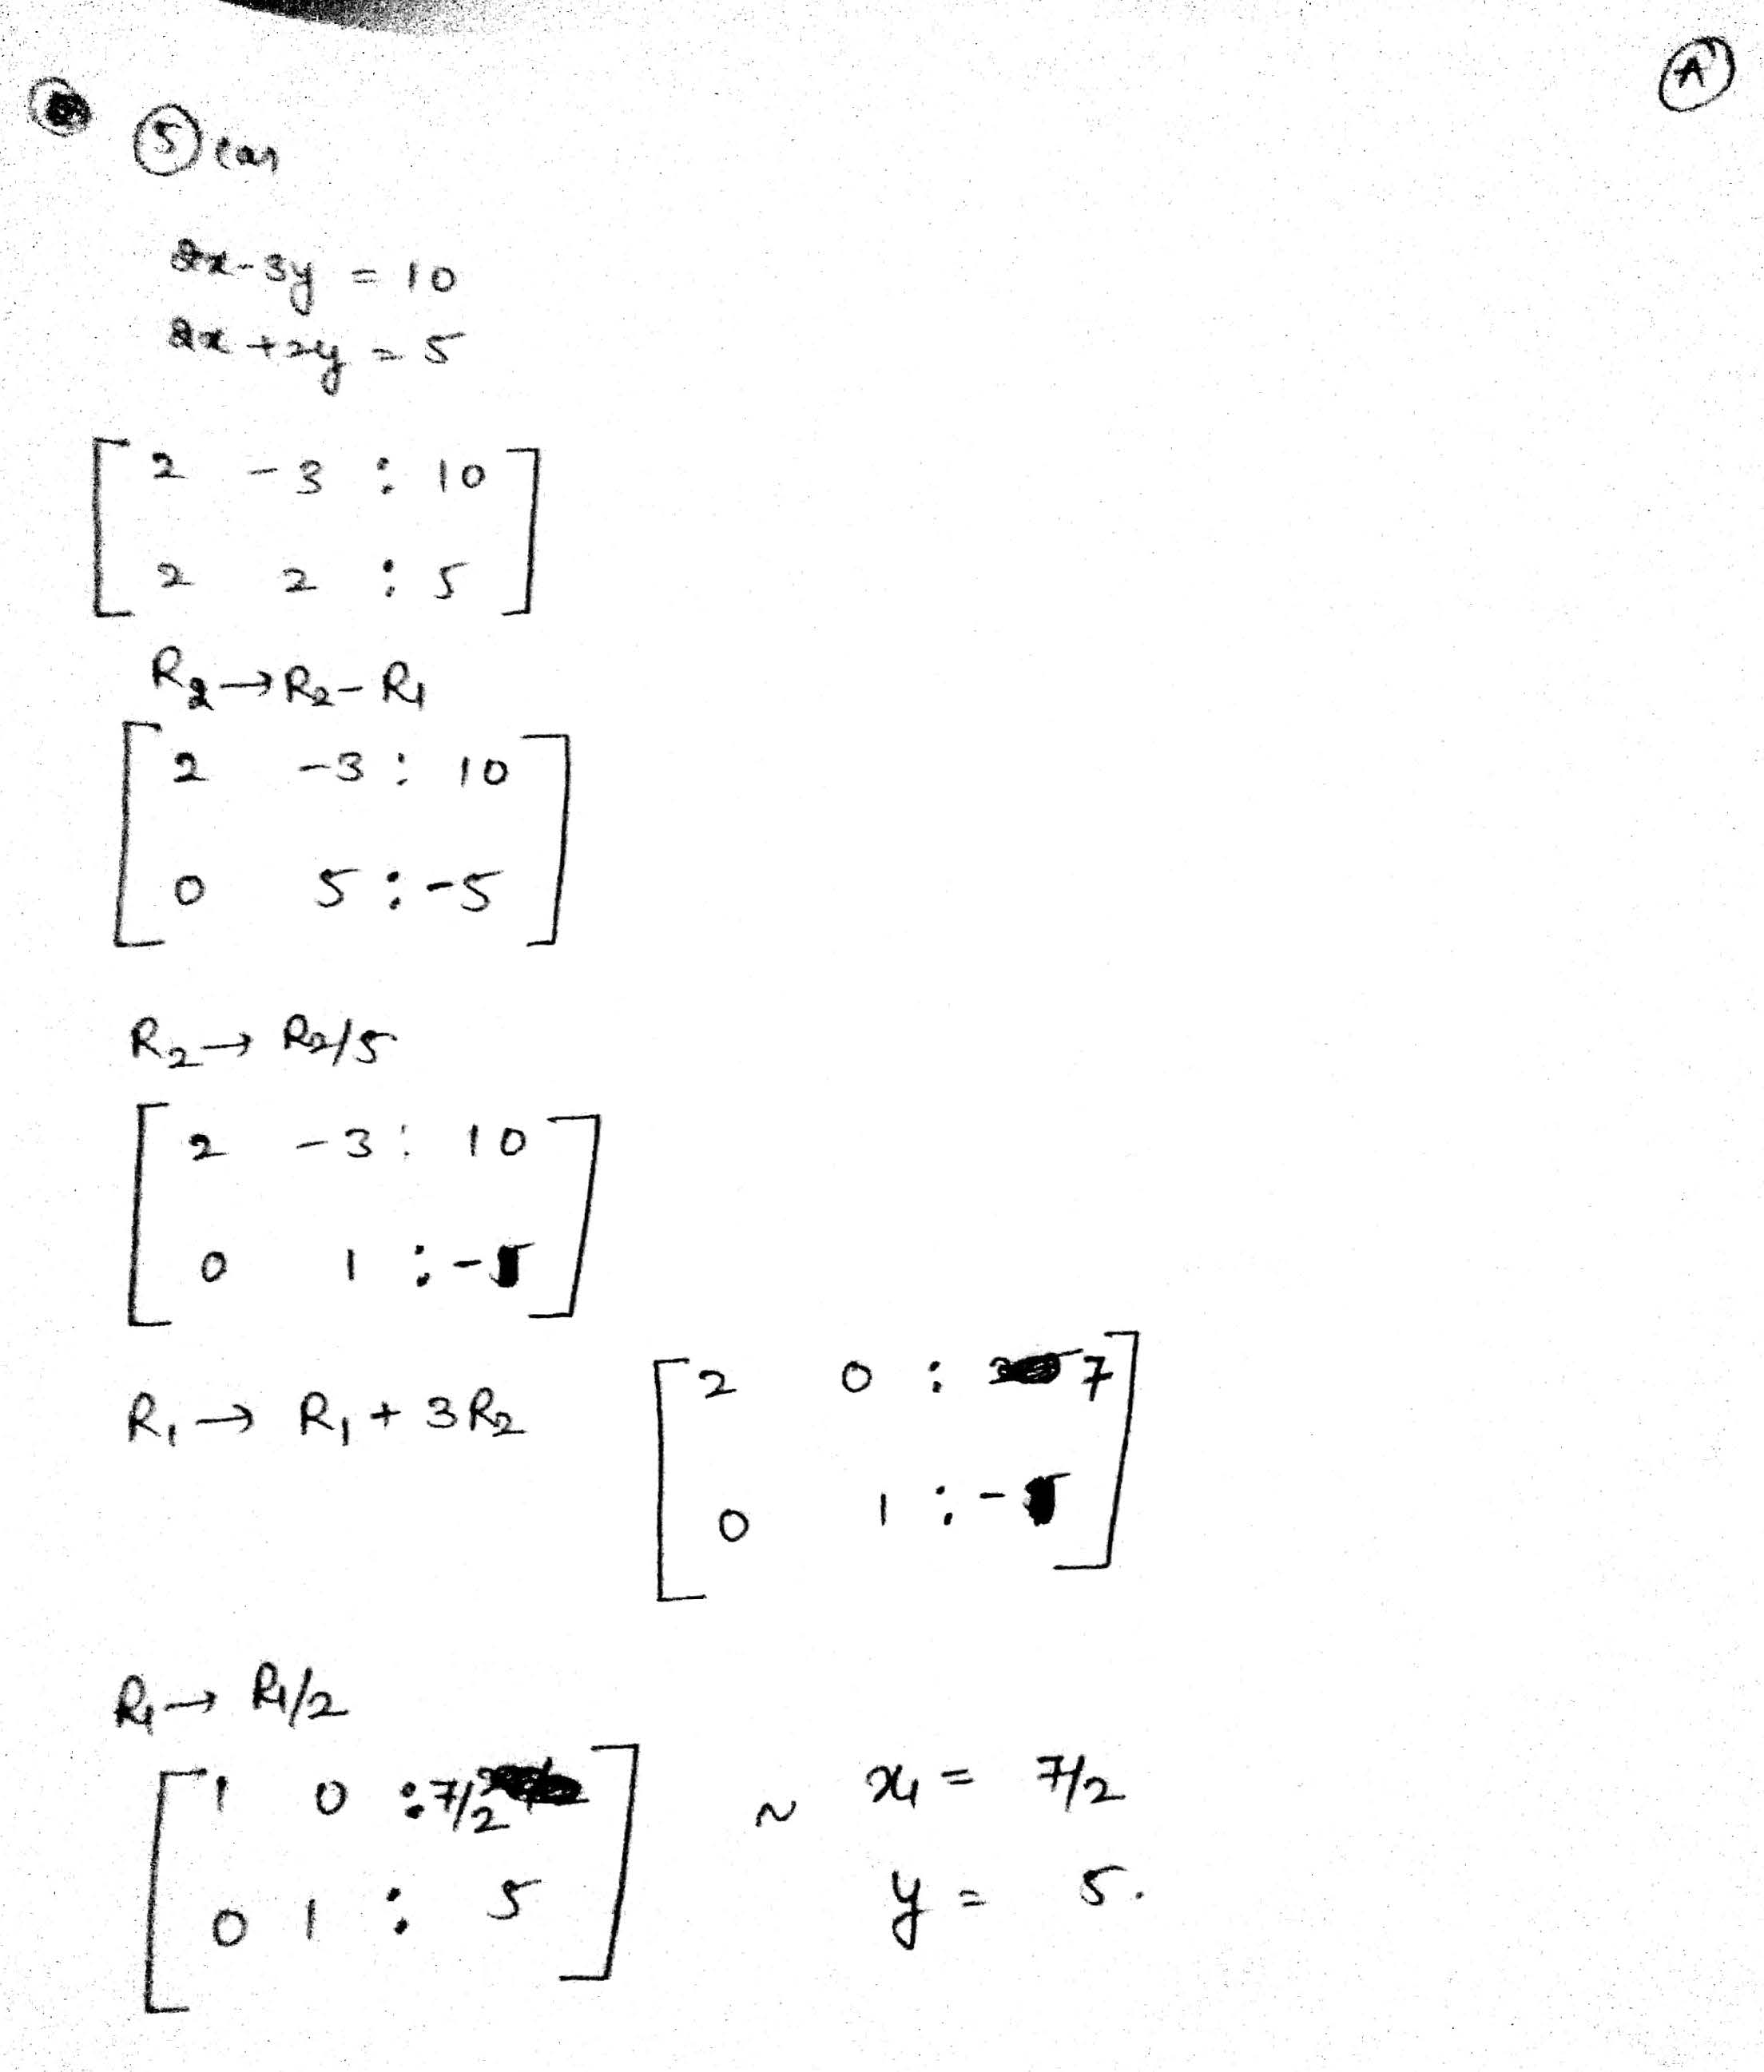 A
5
2x-3y = 10
2x+2y = 5
[ 2 -3 : 10 ]
[ 2 2 : 5 ]
R2→R2-R1
[ 2 -3 : 10 ]
[ 0 5 : -5 ]
R2→ R2/5
[ 2 -3 : 10 ]
[ 0 1 : - ]
R1→ R1+3R2
[ 2 0 : 7 ]
[ 0 1 : - ]
R1→ R1/2
[ 1 0 : 7/2 ] ~ x1 = 7/2
[ 0 1 : 5 ] y = 5.